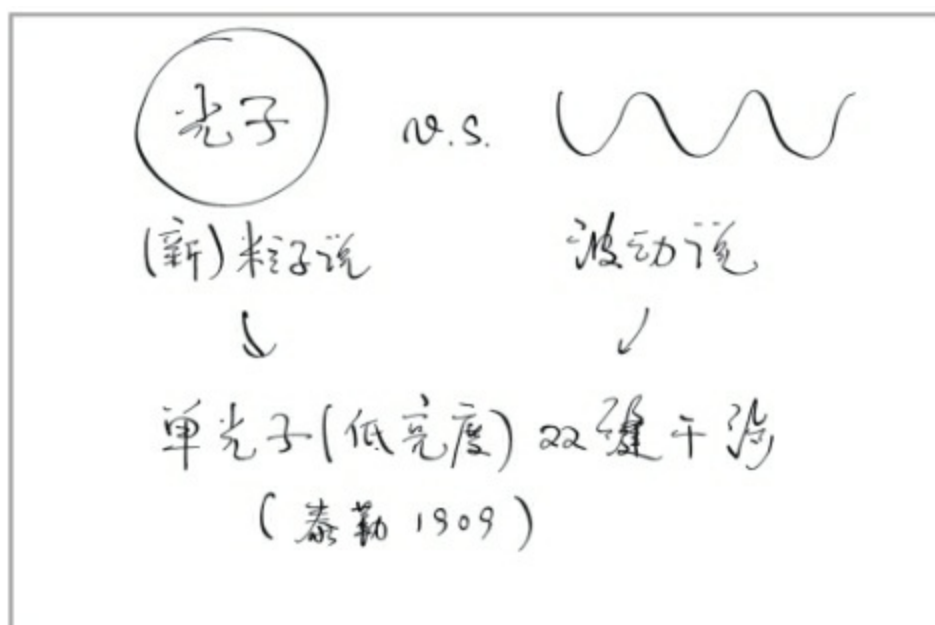 光子 v.s.
(新)粒子说 波动说
单光子(低亮度)双缝干涉
(泰勒 1909)